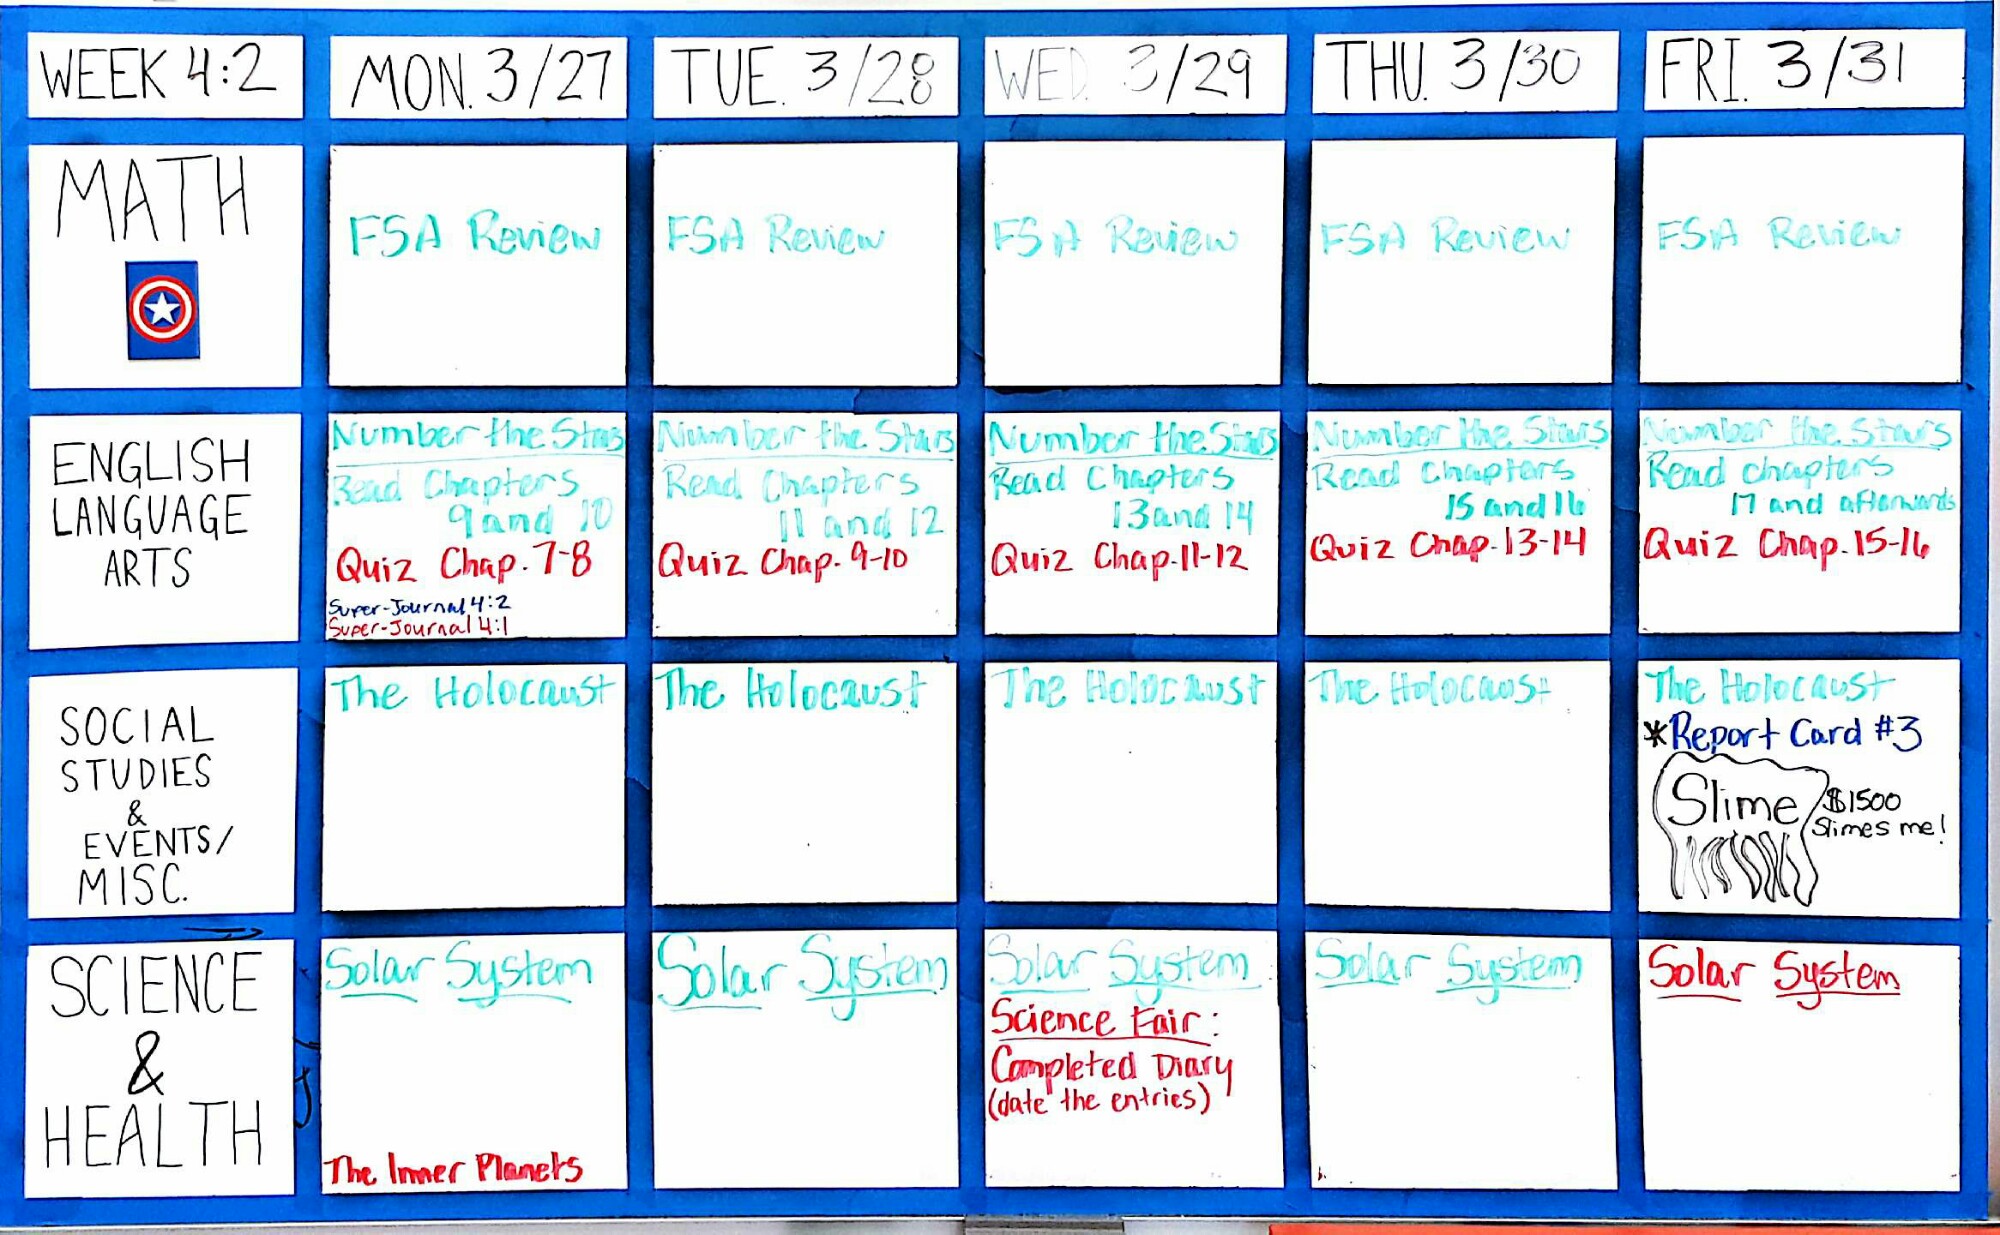 WEEK 4:2
MON. 3/27
TUE. 3/28
WED. 3/29
THU. 3/30
FRI. 3/31
MATH
FSA Review
FSA Review
FSA Review
FSA Review
FSA Review
ENGLISH
LANGUAGE
ARTS
Number the Stars
Read Chapters
9 and 10
Quiz Chap. 7-8
Super-Journal 4:2
Super-Journal 4:1
Number the Stars
Read Chapters
11 and 12
Quiz Chap. 9-10
Number the Stars
Read Chapters
13 and 14
Quiz Chap. 11-12
Number the Stars
Read Chapters
15 and 16
Quiz Chap. 13-14
Number the Stars
Read chapters
17 and afterwards
Quiz Chap. 15-16
SOCIAL
STUDIES
&
EVENTS/
MISC.
The Holocaust
The Holocaust
The Holocaust
The Holocaust
The Holocaust
*Report Card #3
Slime
$1500
Slimes me!
SCIENCE
&
HEALTH
Solar System
The Inner Planets
Solar System
Solar System
Science Fair:
Completed Diary
(date the entries)
Solar System
Solar System